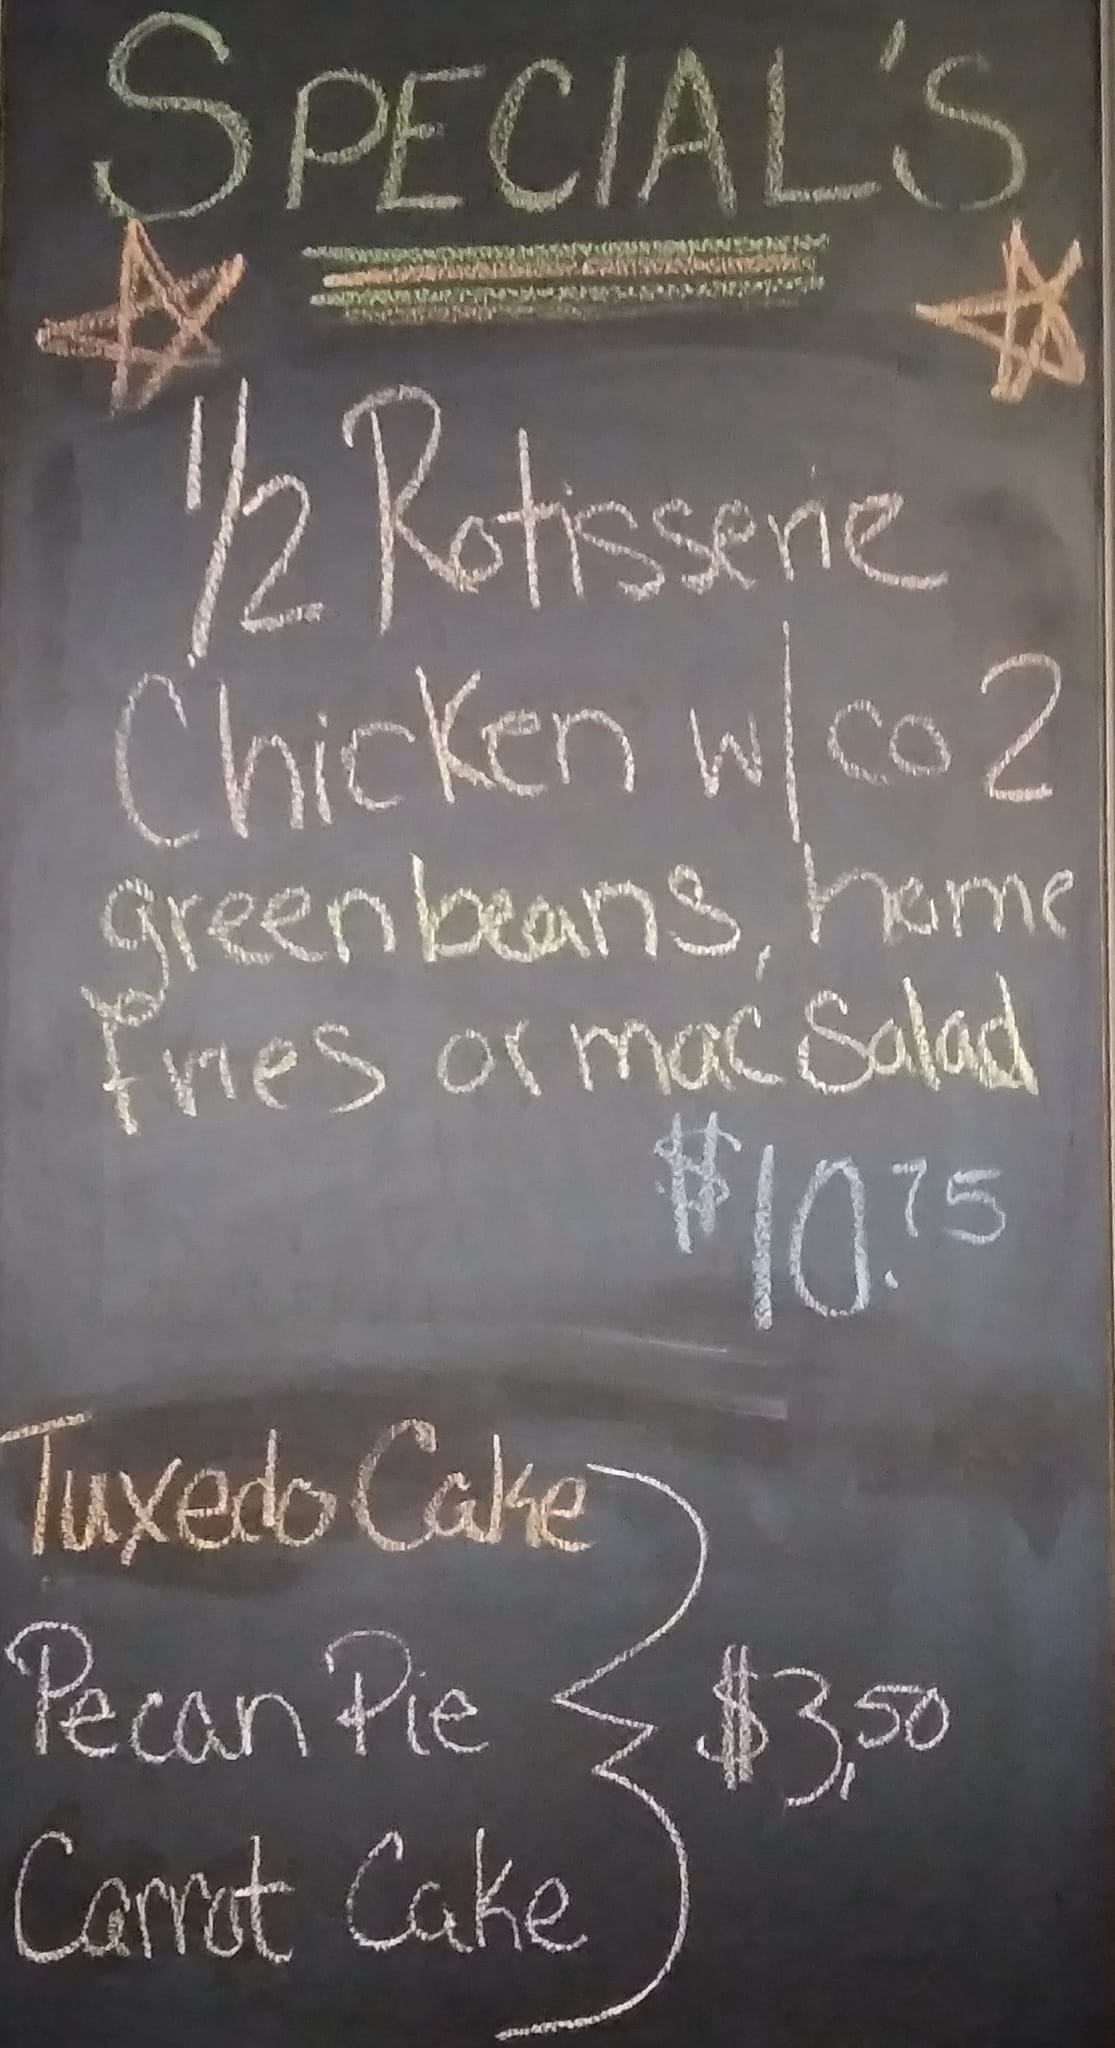 SPECIAL'S
1/2 Rotisserie
Chicken w/ co 2
greenbeans, home
fries or mac Salad
$10.75
Tuxedo Cake
Pecan Pie
$3.50
Carrot Cake